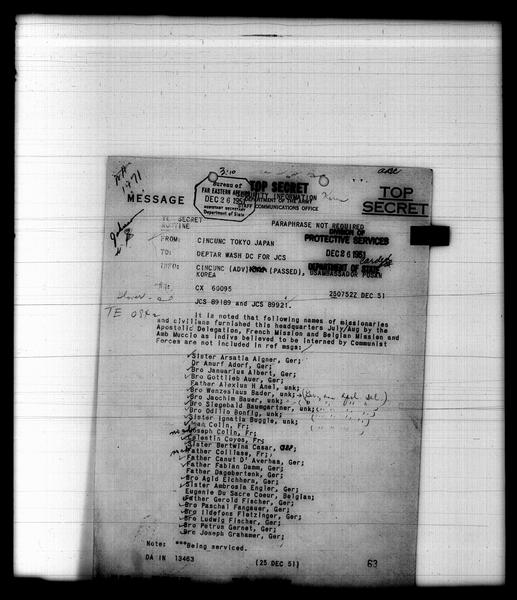 1971
3:10
Bureau of
FAR EASTERN AFFAIRS
DEC 26 1951
ASSISTANT SECRETARY
Department of State
TOP SECRET
SECURITY INFORMATION
DEPARTMENT OF THE ARMY
STAFF COMMUNICATIONS OFFICE
MESSAGE
TOP
SECRET
TOP SECRET
ROUTINE
PARAPHRASE NOT REQUIRED
DIVISION OF
PROTECTIVE SERVICES
DEC 26 1951
DEPARTMENT OF STATE
FROM: CINCUNC TOKYO JAPAN
TO: DEPTAR WASH DC FOR JCS
INFO: CINCUNC (ADV) (PASSED), USAMBASSADOR PUSAN
KOREA
NR: CX 60095 250752Z DEC 51
JCS 89189 and JCS 89921.
It is noted that following names of missionaries
and civilians furnished this headquarters July/Aug by the
Apostolic Delegation, French Mission and Belgian Mission and
Amb Muccio as indivs believed to be interned by Communist
Forces are not included in ref msgs:
Sister Arsatia Aigner, Ger;
Dr Anurf Adorf, Ger;
Bro Januarius Albert, Ger;
Bro Gottlieb Auer, Ger;
Father Alexius H Anel, unk;
Bro Wenzeslaus Bader, unk;
Bro Joachim Bauer, unk;
Bro Siegebald Baumgartner, unk;
Bro Odilio Bonfig, unk;
Sister Ignatia Buggle, unk;
Jean Colin, Fr;
Joseph Colin, Fr;
Celestin Coyos, Fr;
Sister Bertwina Casar,
Father Colliase, Fr;
Father Canut D'Avernas, Ger;
Father Fabian Damm, Ger;
Father Dagobertenk, Ger;
Bro Agid Eichhorn, Ger;
Sister Ambrosia Engler, Ger;
Eugenie Du Sacre Coeur, Belgian;
Father Gerold Fischer, Ger;
Bro Paschal Fangauer, Ger;
Bro Ildefons Fletzinger, Ger;
Bro Ludwig Fischer, Ger;
Bro Petrus Gernet, Ger;
Bro Joseph Grahamer, Ger;
Note: ***Being serviced.
DA IN 13463 (25 DEC 51) 63